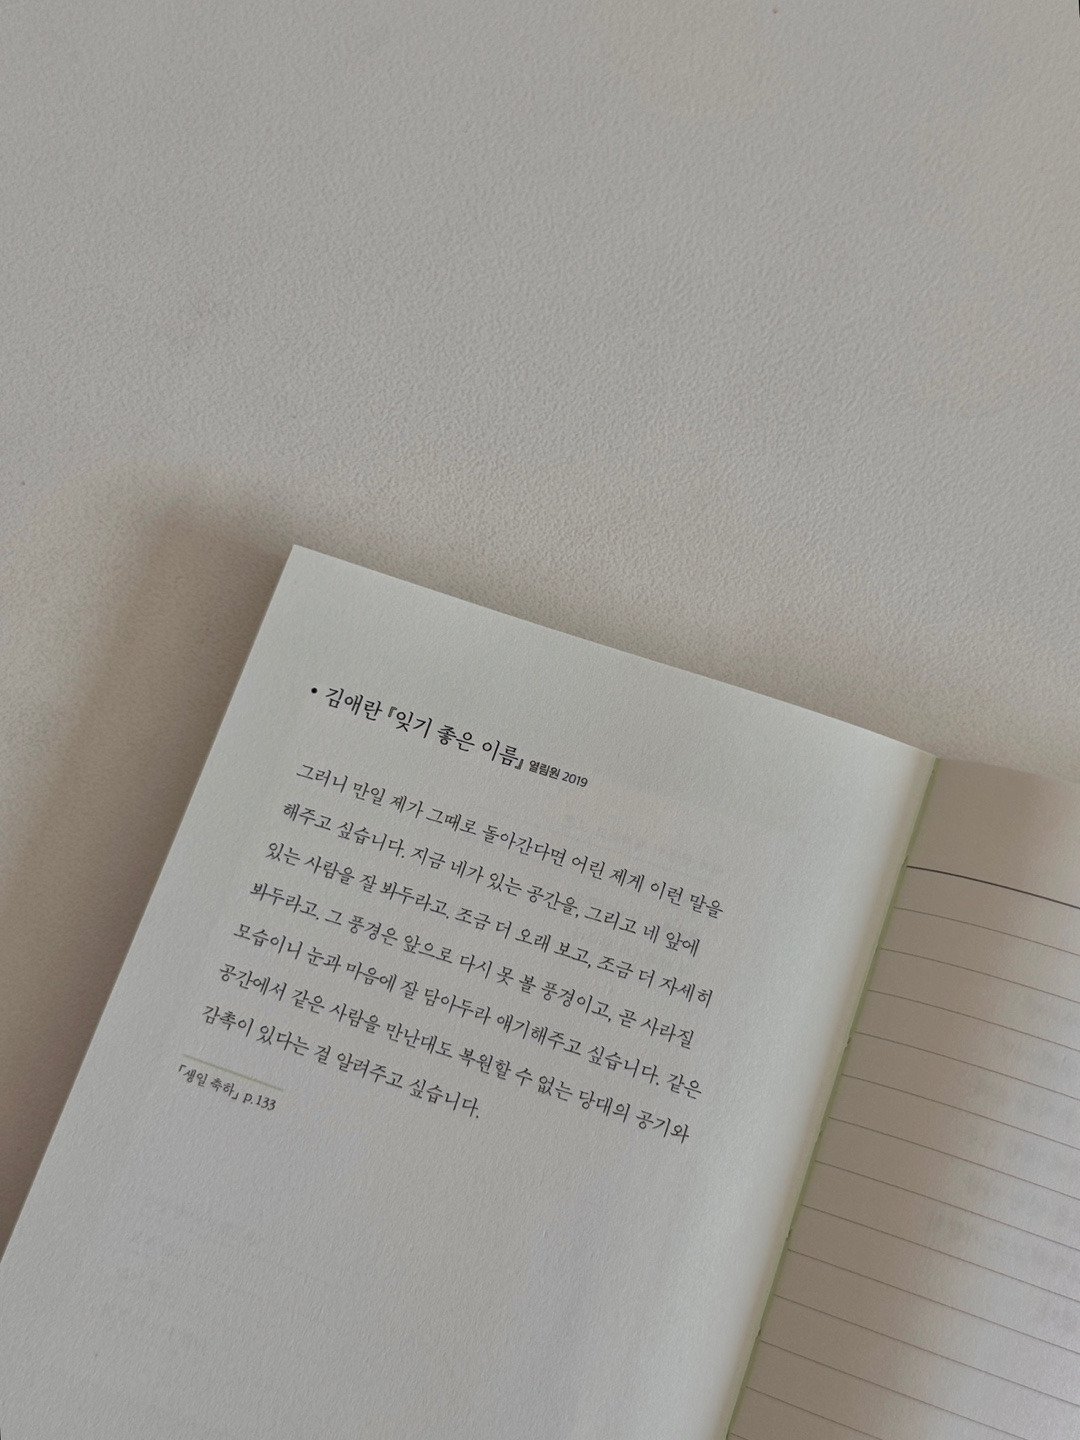 • 김애란 『잊기 좋은 이름』 열림원 2019
그러니 만일 제가 그때로 돌아간다면 어린 제게 이런 말을
해주고 싶습니다. 지금 네가 있는 공간을, 그리고 네 앞에
있는 사람을 잘 봐두라고. 조금 더 오래 보고, 조금 더 자세히
봐두라고. 그 풍경은 앞으로 다시 못 볼 풍경이고, 곧 사라질
모습이니 눈과 마음에 잘 담아두라 얘기해주고 싶습니다. 같은
공간에서 같은 사람을 만난대도 복원할 수 없는 당대의 공기와
감촉이 있다는 걸 알려주고 싶습니다.
「생일 축하」 p.133